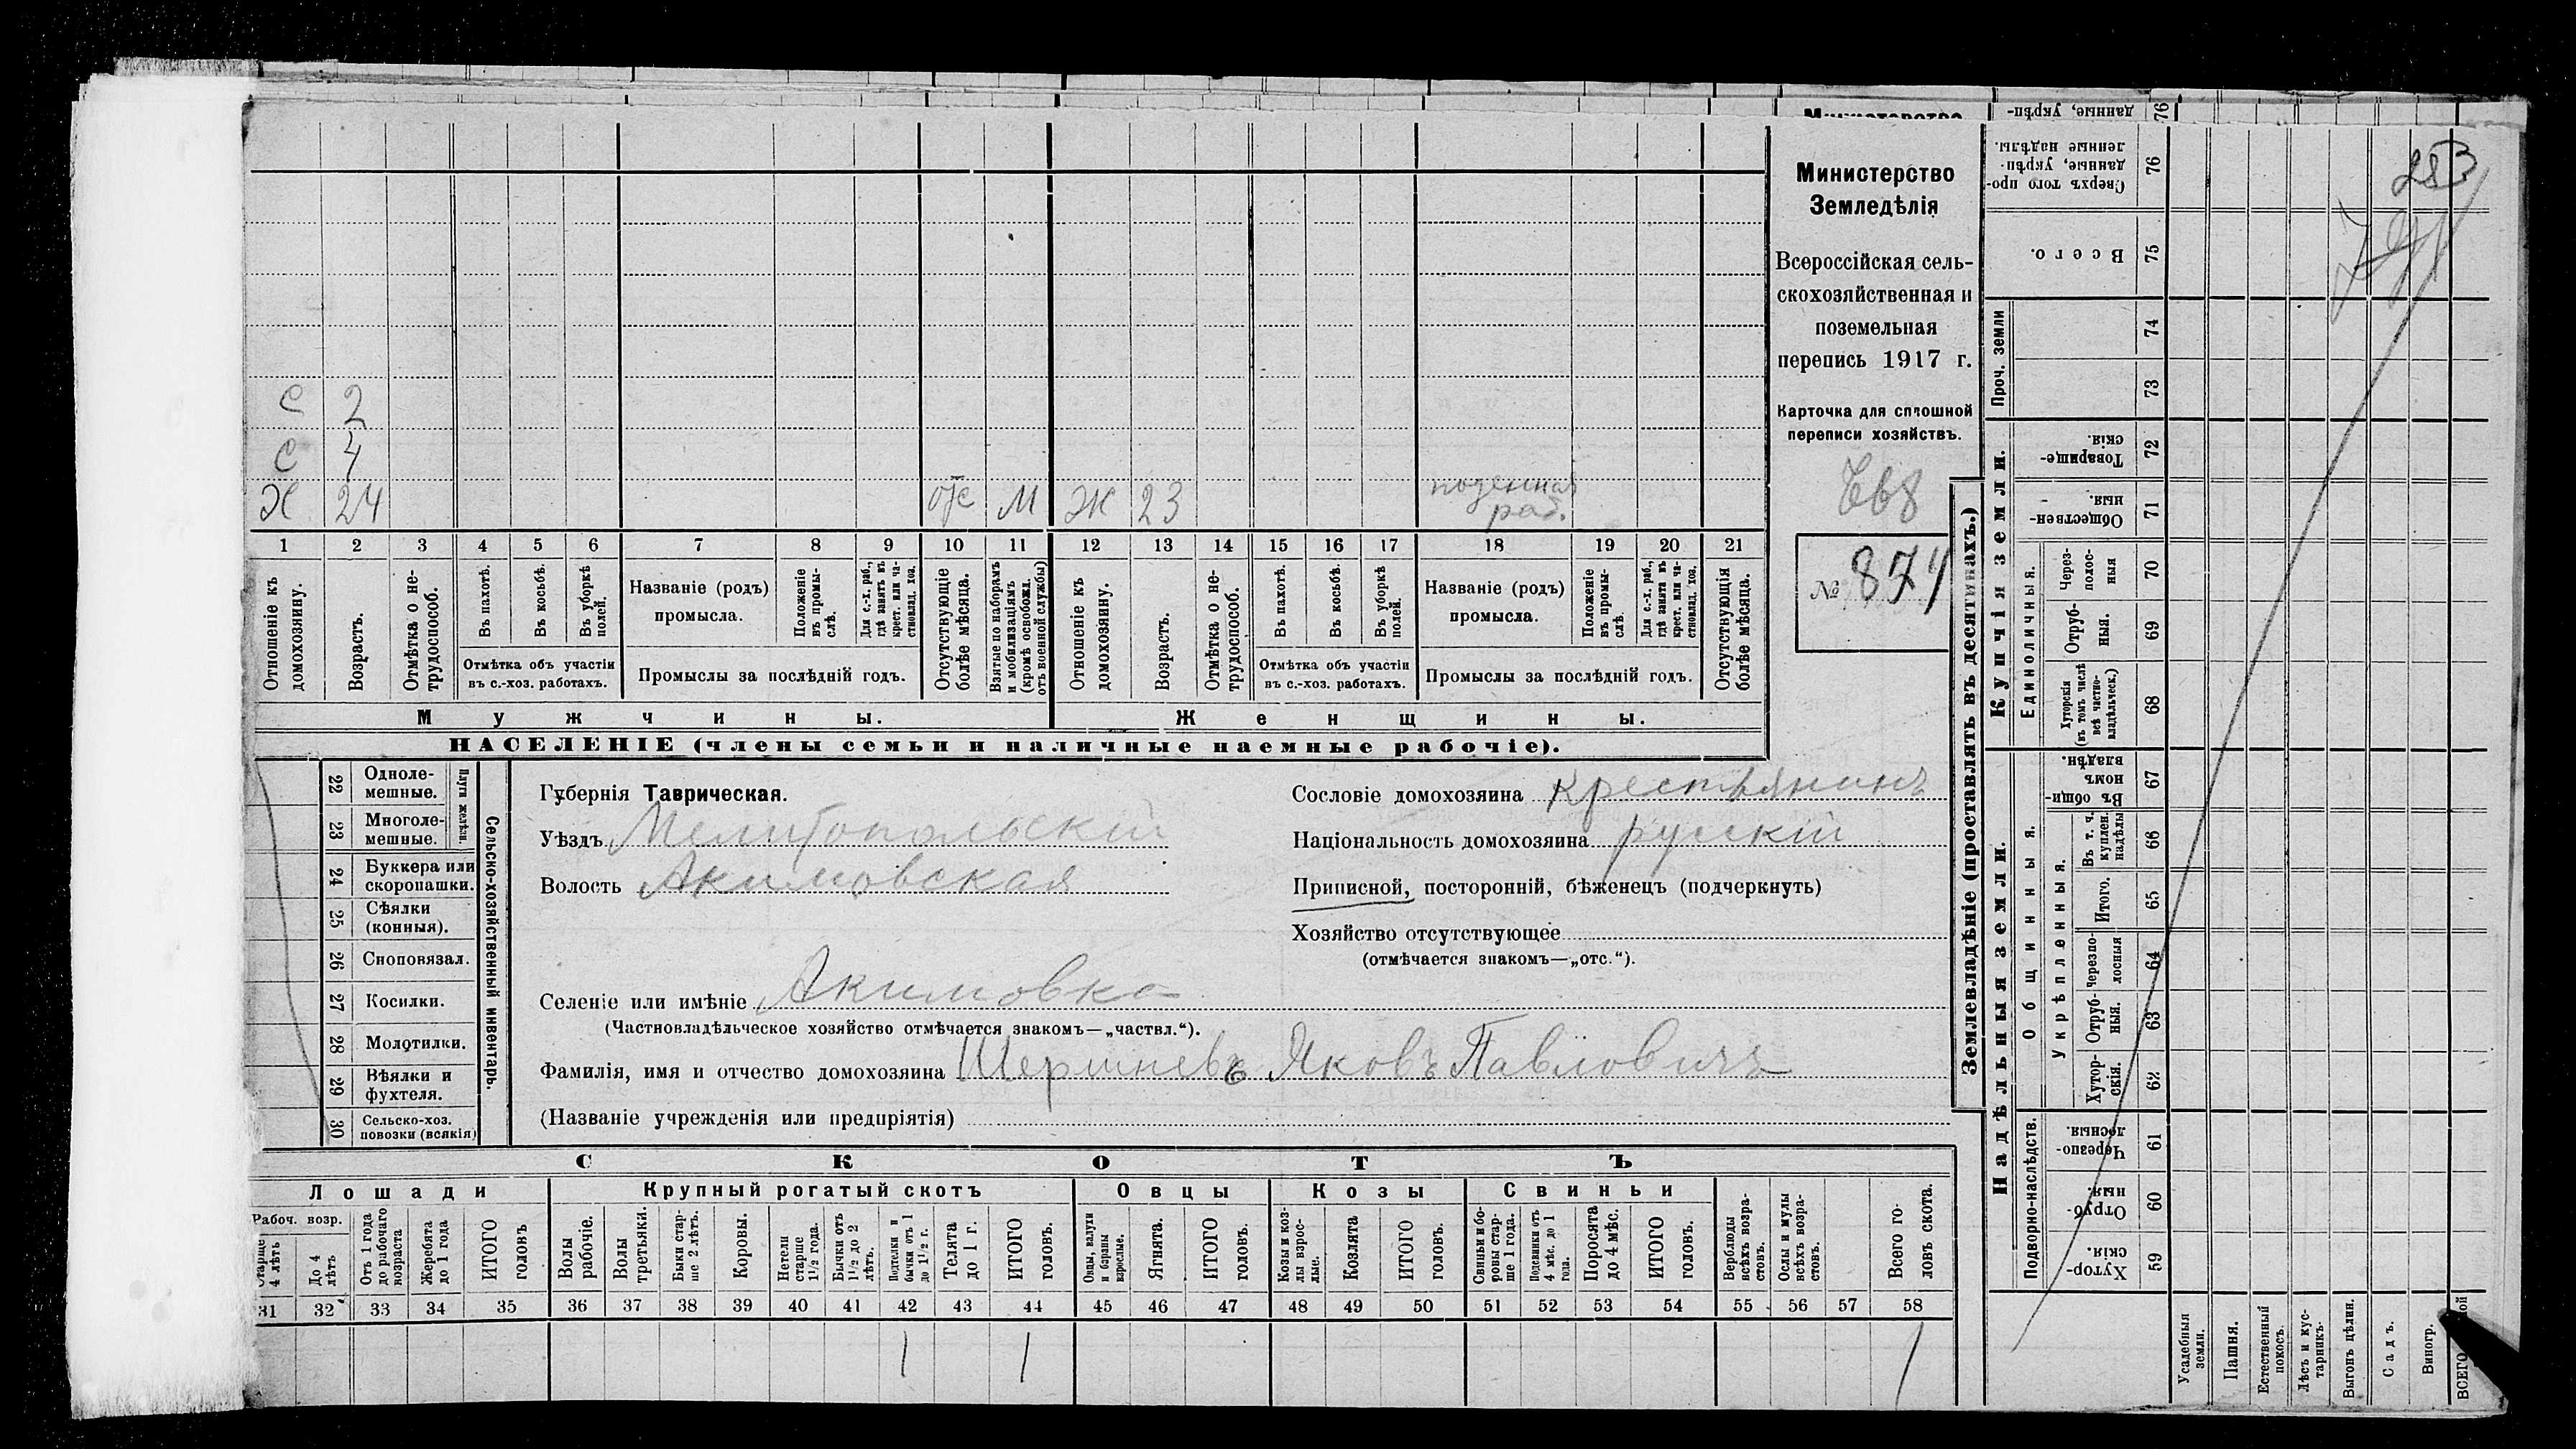 С 2
С 4
Х 24 отс М Ж 23 поденная раб.
1 2 3 4 5 6 7 8 9 10 11 12 13 14 15 16 17 18 19 20 21
Отношеніе къ домохозяину.
Возрастъ.
Отмѣтка о не-трудоспособ.
Въ пахотѣ.
Въ косьбѣ.
Въ уборкѣ полей.
Отмѣтка объ участіи
въ с.-хоз. работахъ.
Названіе (родъ)
промысла.
Положеніе въ промы-слѣ.
Для с.-х. раб., гдѣ занятъ въ крест. или ча-стновлад. хоз.
Промыслы за послѣдній годъ.
Отсутствующіе болѣе мѣсяца.
Взятые по наборамъ и мобилизаціямъ (кромѣ освобожд. отъ военной службы)
Отношеніе къ домохозяину.
Возрастъ.
Отмѣтка о не-трудоспособ.
Въ пахотѣ.
Въ косьбѣ.
Въ уборкѣ полей.
Отмѣтка объ участіи
въ с.-хоз. работахъ.
Названіе (родъ)
промысла.
Положеніе въ промы-слѣ.
Для с.-х. раб., гдѣ занята въ крест. или ча-стновлад. хоз.
Промыслы за послѣдній годъ.
Отсутствующія болѣе мѣсяца.
Мужчины.
Женщины.
НАСЕЛЕНІЕ (члены семьи и наличные наемные рабочіе).
Министерство
Министерство
Земледѣлія
Всероссійская сель-
скохозяйственная и
поземельная
перепись 1917 г.
Карточка для сплошной
переписи хозяйствъ.
№ 874
22 Одноле-мешные.
23 Многоле-мешные.
Плуги желѣзн.
24 Буккера или скоропашки.
25 Сѣялки (конныя).
26 Сноповязал.
27 Косилки.
28 Молотилки.
29 Вѣялки и фухтеля.
30 Сельско-хоз. повозки (всякія)
Сельско-хозяйственный инвентарь.
Губернія Таврическая.
Уѣздъ Мелитопольскій
Волость Акимовская
Селеніе или имѣніе Акимовка
(Частновладѣльческое хозяйство отмѣчается знакомъ—„частвл.“).
Фамилія, имя и отчество домохозяина Шершневъ Яковъ Павловичъ
(Названіе учрежденія или предпріятія)
Сословіе домохозяина Крестьянинъ
Національность домохозяина русскій
Приписной, посторонній, бѣженецъ (подчеркнуть)
Хозяйство отсутствующее
(отмѣчается знакомъ—„отс.“).
СКОТЪ
Лошади
Крупный рогатый скотъ
Овцы
Козы
Свиньи
Рабоч. возр.
Старше 4 лѣтъ
До 4 лѣтъ
Отъ 1 года до рабочаго возраста
Жеребята до 1 года
ИТОГО головъ
Волы рабочіе.
Волы третьяки.
Быки стар-ше 2 лѣтъ.
Коровы.
Нетели старше 1 1/2 года.
Бычки отъ 1 1/2 до 2 лѣтъ.
Подтелки и бычки отъ 1 до 1 1/2 г.
Телята до 1 г.
ИТОГО головъ.
Овцы, валухи и бараны взрослые.
Ягнята.
ИТОГО головъ.
Козы и коз-лы взрос-лые.
Козлята
ИТОГО головъ.
Свиньи и бо-ровы стар-ше 1 года.
Подсвинки отъ 4 мѣс. до 1 года.
Поросята до 4 мѣс.
ИТОГО головъ.
Верблюды всѣхъ возра-стовъ.
Ослы и мулы всѣхъ возра-стовъ.
Всего го-ловъ скота.
31 32 33 34 35 36 37 38 39 40 41 42 43 44 45 46 47 48 49 50 51 52 53 54 55 56 57 58
1 1 1
Землевладѣніе (проставлять въ десятинахъ.)
Купчія земли.
Надѣльныя земли.
Проч. земли
Единоличныя.
Общинныя.
Укрѣпленныя.
Подворно-наслѣдств.
данные, укрѣп- 76
Сверхъ того про-данные, укрѣп-ленные надѣлы. 76
Всего. 75
74
73
Товарище-скія. 72
Обществен-ныя. 71
Через-полос-ныя 70
Отруб-ныя. 69
Хуторскія (въ томъ числѣ всѣ частно-владѣльческ.) 68
Въ общи-номъ владѣн. 67
Въ т. ч. куплен. надѣлы 66
Итого. 65
Черезпо-лосныя 64
Отруб-ныя. 63
Хутор-скія. 62
Черезпо-лосныя. 61
Отруб-ныя. 60
Хутор-скія. 59
Усадебныя земли.
Пашня.
Естественный покосъ.
Лѣсъ и кус-тарникъ.
Выгонъ цѣлин.
Садъ.
Виногр.
ВСЕГО
283